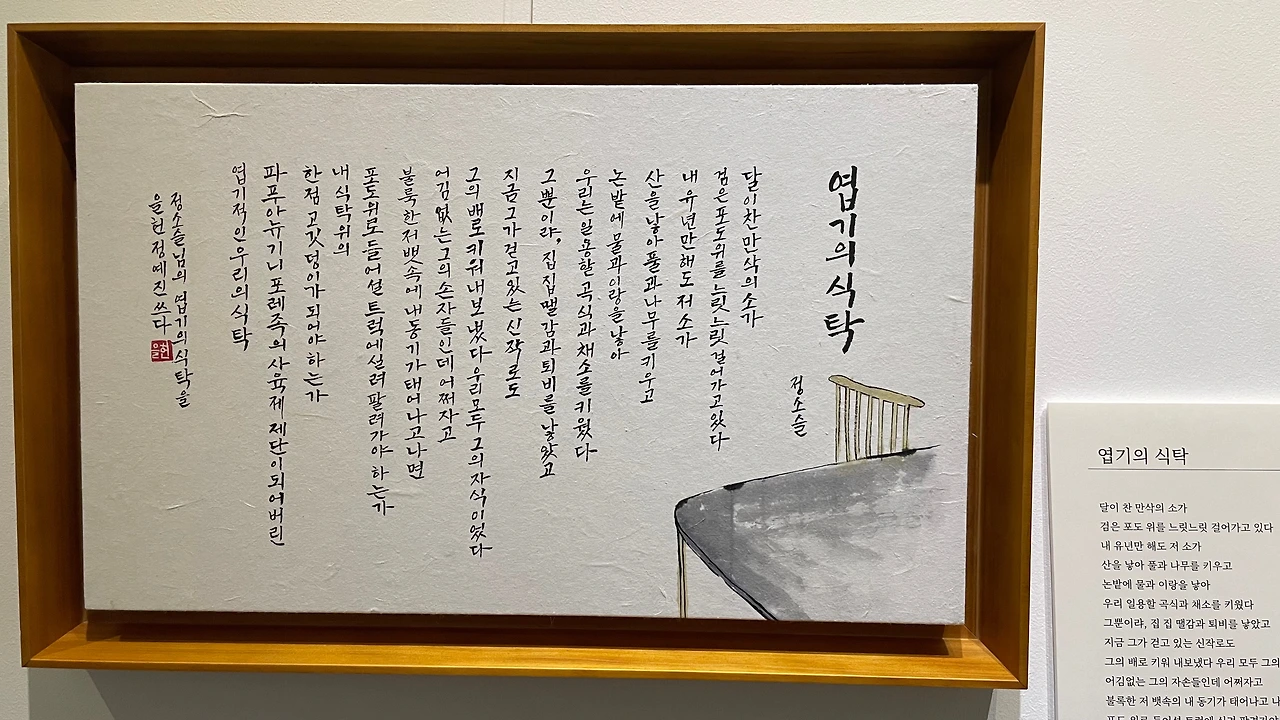 엽기의 식탁
정소슬
달이 찬 만삭의 소가
검은 포도 위를 느릿느릿 걸어가고 있다
내 유년만 해도 저 소가
산을 낳아 풀과 나무를 키우고
논밭에 물과 이랑을 낳아
우리는 일용한 곡식과 채소를 키웠다
그뿐이랴, 집집 땔감과 퇴비를 낳았고
지금 그가 걷고 있는 신작로도
그의 배로 키워 내보냈다 우리 모두 그의 자식이었다
어김없는 그의 손자들인데 어쩌자고
불룩한 저 뱃속에 내 동기가 태어나고 나면
포도 위로 들어선 트럭에 실려 팔려가야 하는가
내 식탁 위의
한 점 고깃덩이가 되어야 하는가
파푸아뉴기니 포레족의 사육제 제단이 되어버린
엽기적인 우리의 식탁
정소슬님의 엽기의 식탁을
을현 정예진 쓰다
엽기의 식탁
달이 찬 만삭의 소가
검은 포도 위를 느릿느릿 걸어가고 있다
내 유년만 해도 저 소가
산을 낳아 풀과 나무를 키우고
논밭에 물과 이랑을 낳아
우리 일용할 곡식과 채소를 키웠다
그뿐이랴, 집 집 땔감과 퇴비를 낳았고
지금 그가 걷고 있는 신작로도
그의 배로 키워 내보냈다 우리 모두 그의
어김없는 그의 자손들인데 어쩌자고
불룩한 저 뱃속의 내 동기가 태어나고